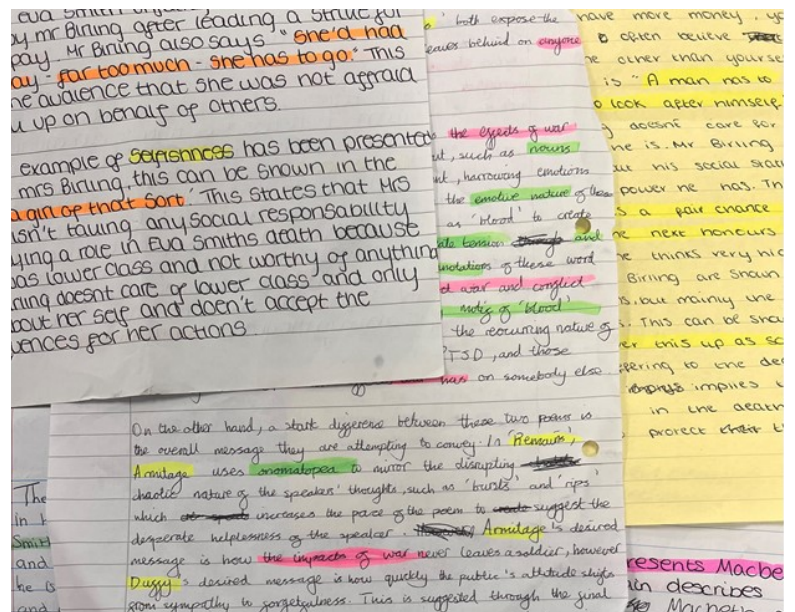 Eva Smith
by Mr Birling after leading a strike for
pay. Mr Birling also says "she'd had
ay - far too much - she has to go." This
he audience that she was not affraid
u up on behalf of others.
example of selfishness has been presented
mrs Birling, this can be shown in the
a girl of that sort' This states that Mrs
isn't taking any social responsability
ying a role in Eva Smiths death because
as lower class and not worthy of anything
ling doesnt care of lower class and only
bout her self and doen't accept the
uences for her actions
both expose the
eaves behind on anyone
the effects of war
ut, such as nouns
nt, harrowing emotions
the emotive nature of these
as 'blood' to create
tension and
nnotations of these word
d war and conflict
motif of 'blood'
the reocurring nature of
PTSD, and those
has on somebody else.
On the other hand, a stark difference between these two poems is
the overall message they are attempting to convey. In 'Remains',
Armitage uses onomatopea to mirror the disrupting
chaotic nature of the speakers' thoughts, such as 'bursts' and 'rips'
which increases the pace of the poem to suggest the
desperate helplessness of the speaker. Armitage's desired
message is how the impacts of war never leaves a soldier, however
Duffy's desired message is how quickly the public's attitude shifts
from sympathy to forgetfulness. This is suggested through the final
have more money, yo
often believe
he other than yourse
is "A man has to
o look after himself
doesnt care for
he is. Mr Birling
his social stat
power he has. Th
s a fair chance
he next honours
he thinks very hig
Birling are shown
s, but mainly the
. This can be show
er this up as so
ffering to the de
implies t
in the death
protect their
The
in
Smith
and
he is
and
resents Macbe
in describes
Macbeth